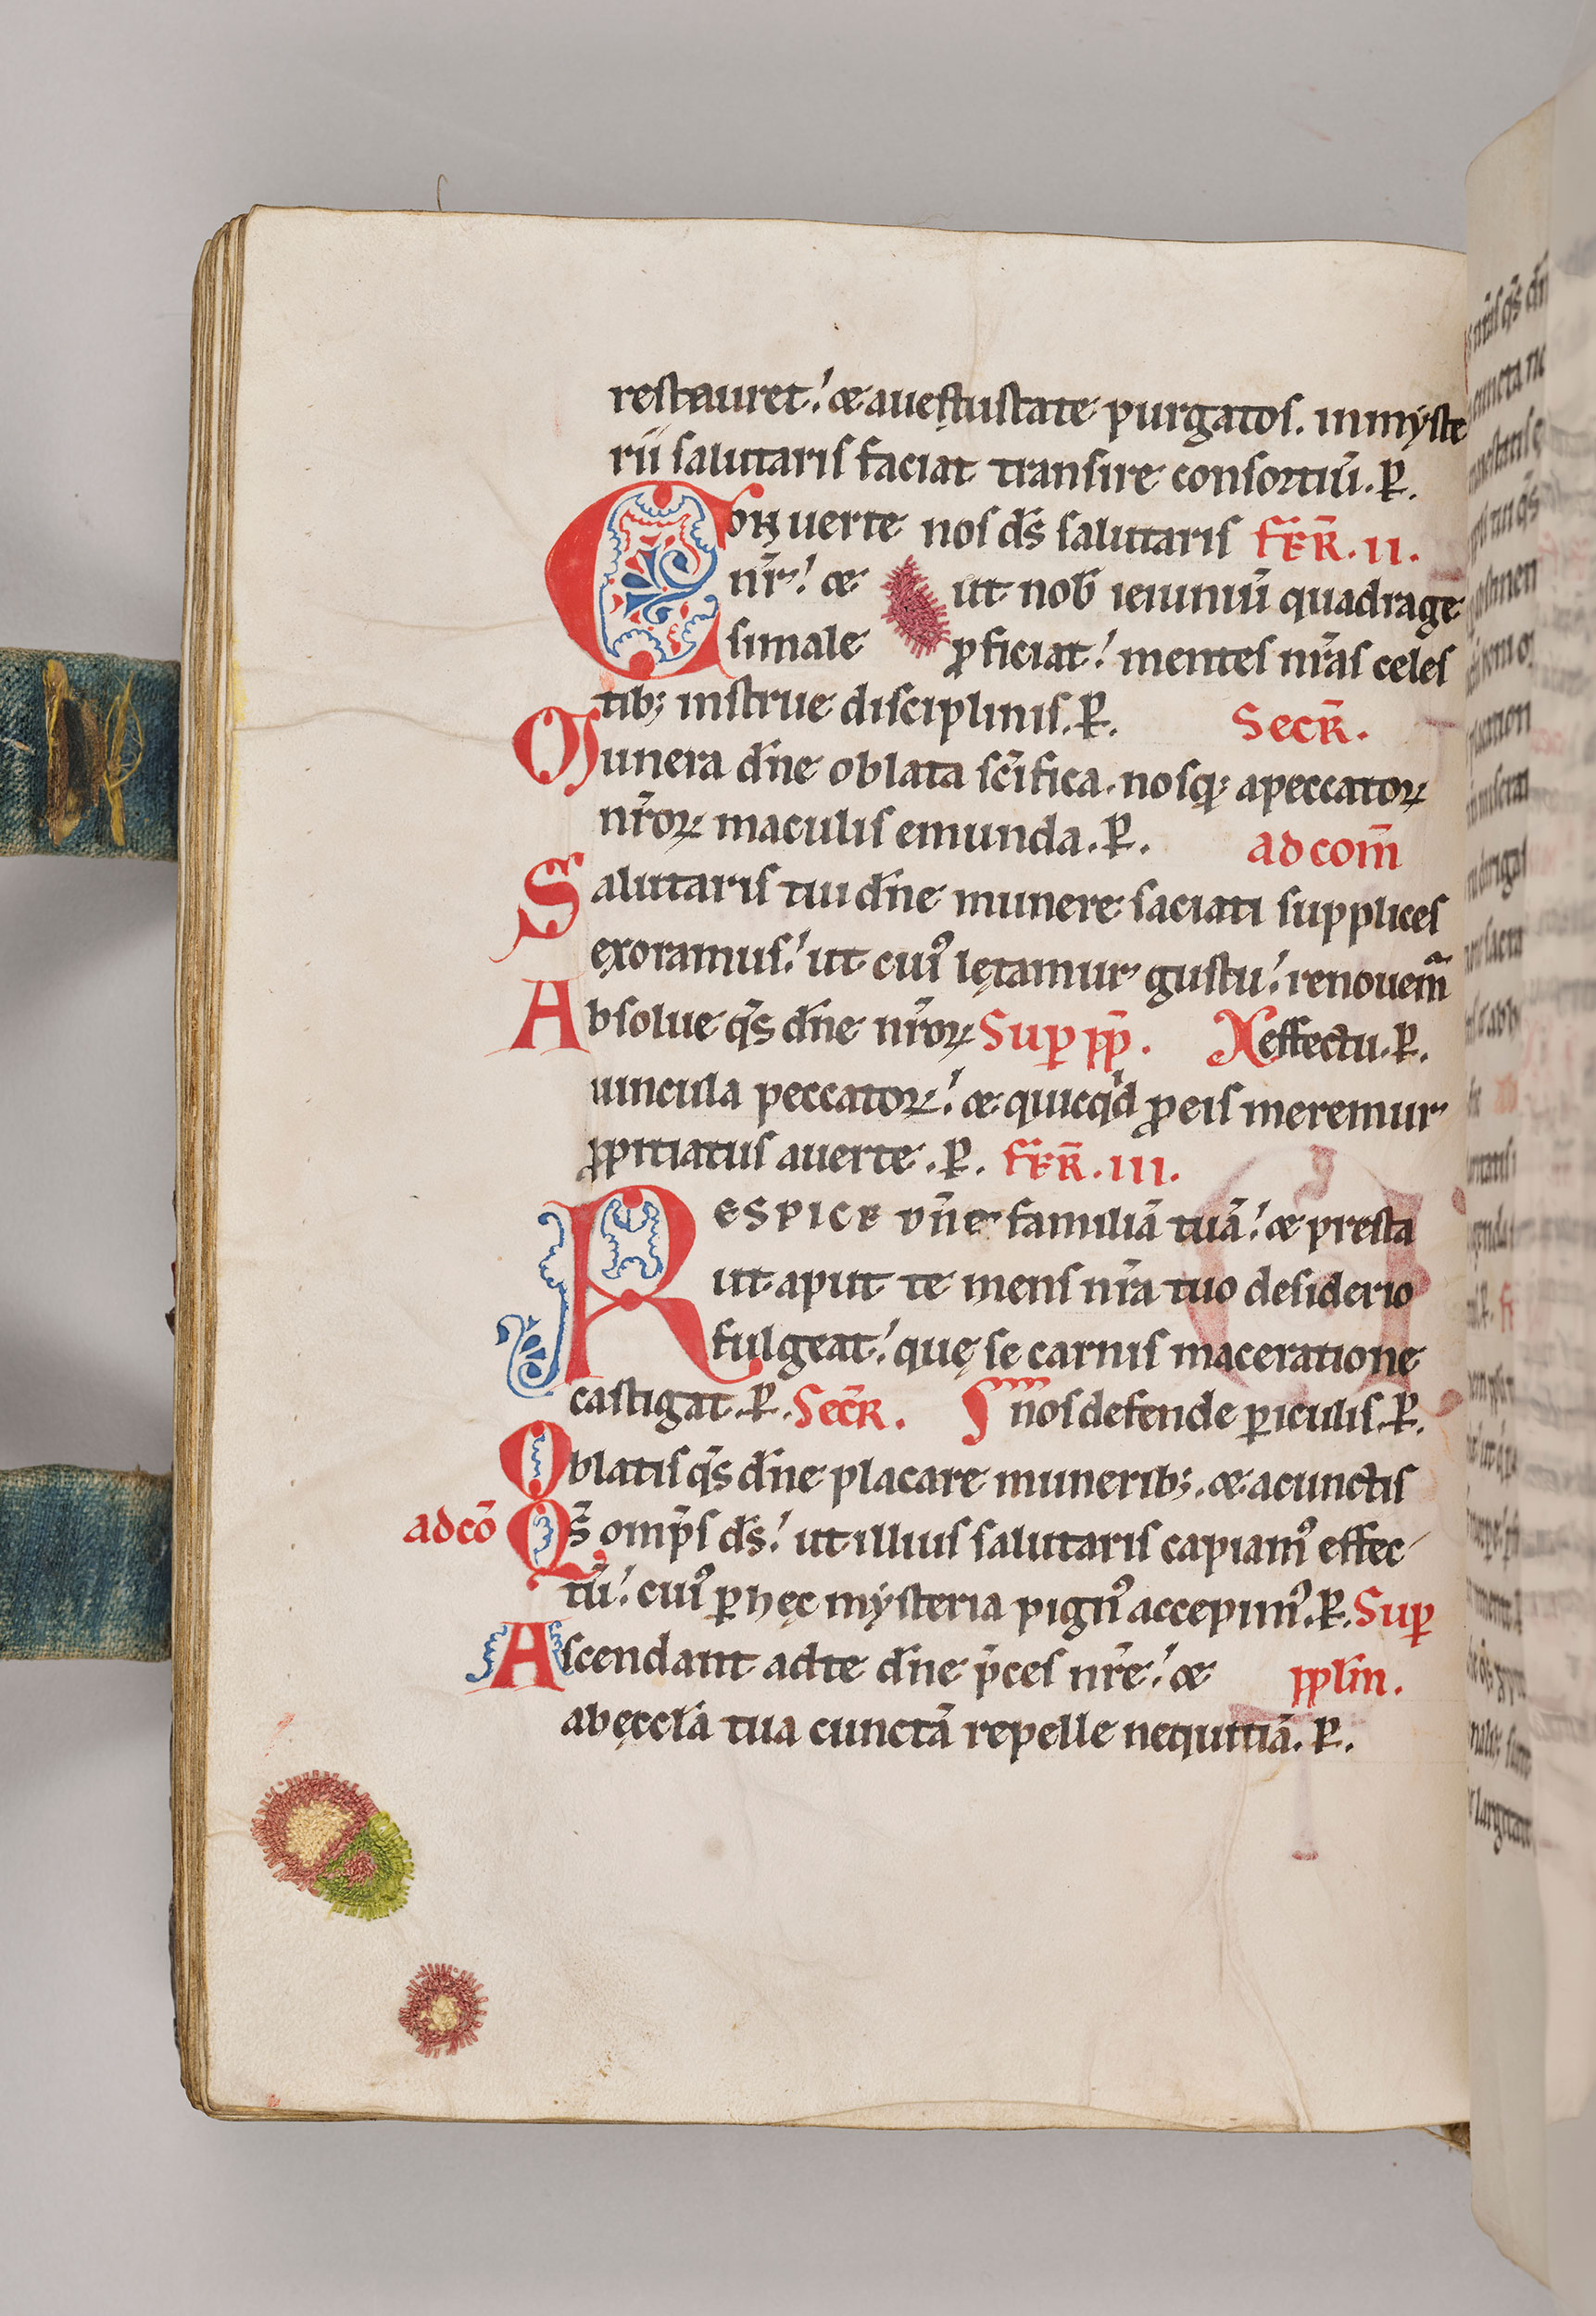 restauret! & auestustate purgatos. in myste
rii salutaris faciat transire consortiū. P̱.
Conuerte nos d̄s salutaris FER̄. II.
nr̄! & ut nob̄ ieiuniū quadrage
simale ꝓficiat! mentes nr̄as celes
tib; instrue disciplinis. P̱. Secr̄.
Munera dn̄e oblata sc̄ifica. nosq; a peccatoꝝ
nr̄oꝝ maculis emunda. P̱. ad com̄
Salutaris tui dn̄e munere saciati supplices
exoramus! ut cuiꝰ lętamur gustu! renouem̄
Absolue qs̄ dn̄e nr̄oꝝ Suꝑ pp̄. effectu. P̱.
uincula peccatoꝝ! & quicqd ꝓ eis meremur
ꝓpitiatus auerte. P̱. FER̄. III.
RESPICE dn̄e familiā tuā! & presta
ut aput te mens nr̄a tuo desiderio
fulgeat! quę se carnis maceratione
castigat. P̱. Secr̄. nos defende ꝑiculis. P̱.
Oblatis qs̄ dn̄e placare munerib;. & a cunctis
ad cō Qs̄ omp̄s d̄s! ut illius salutaris capiamꝰ effec
tū! cuiꝰ ꝑ hęc mẏsteria pignꝰ accepimꝰ. P̱. Suꝑ
Ascendant ad te dn̄e p̄ces nr̄e! & pplm̄.
ab ęccl̄a tua cunctā repelle nequitiā. P̱.